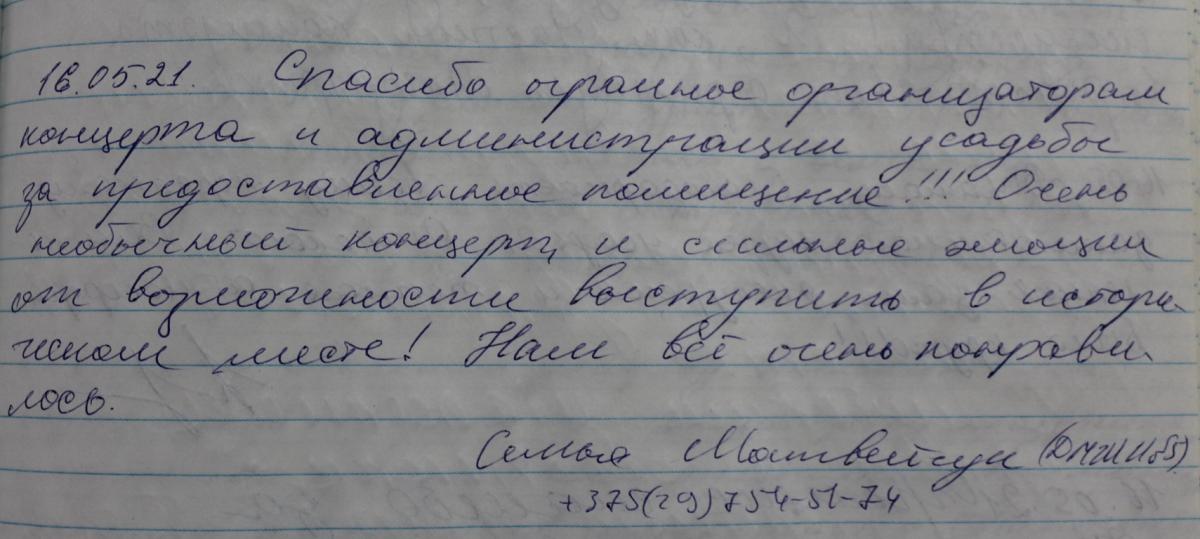 16.05.21. Спасибо огромное организаторам
концерта и администрации усадьбы
за предоставленное помещение!!! Очень
необычный концерт, и сильные эмоции
от возможности выступить в истори-
ческом месте! Нам всё очень понрави-
лось.
Семья Матвейчук
+375(29)754-51-74